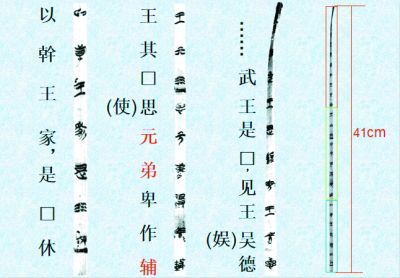 ……武王是□,见王吴(娱)德
王其□思(使)元弟卑作辅
以幹王家,是□休
41cm